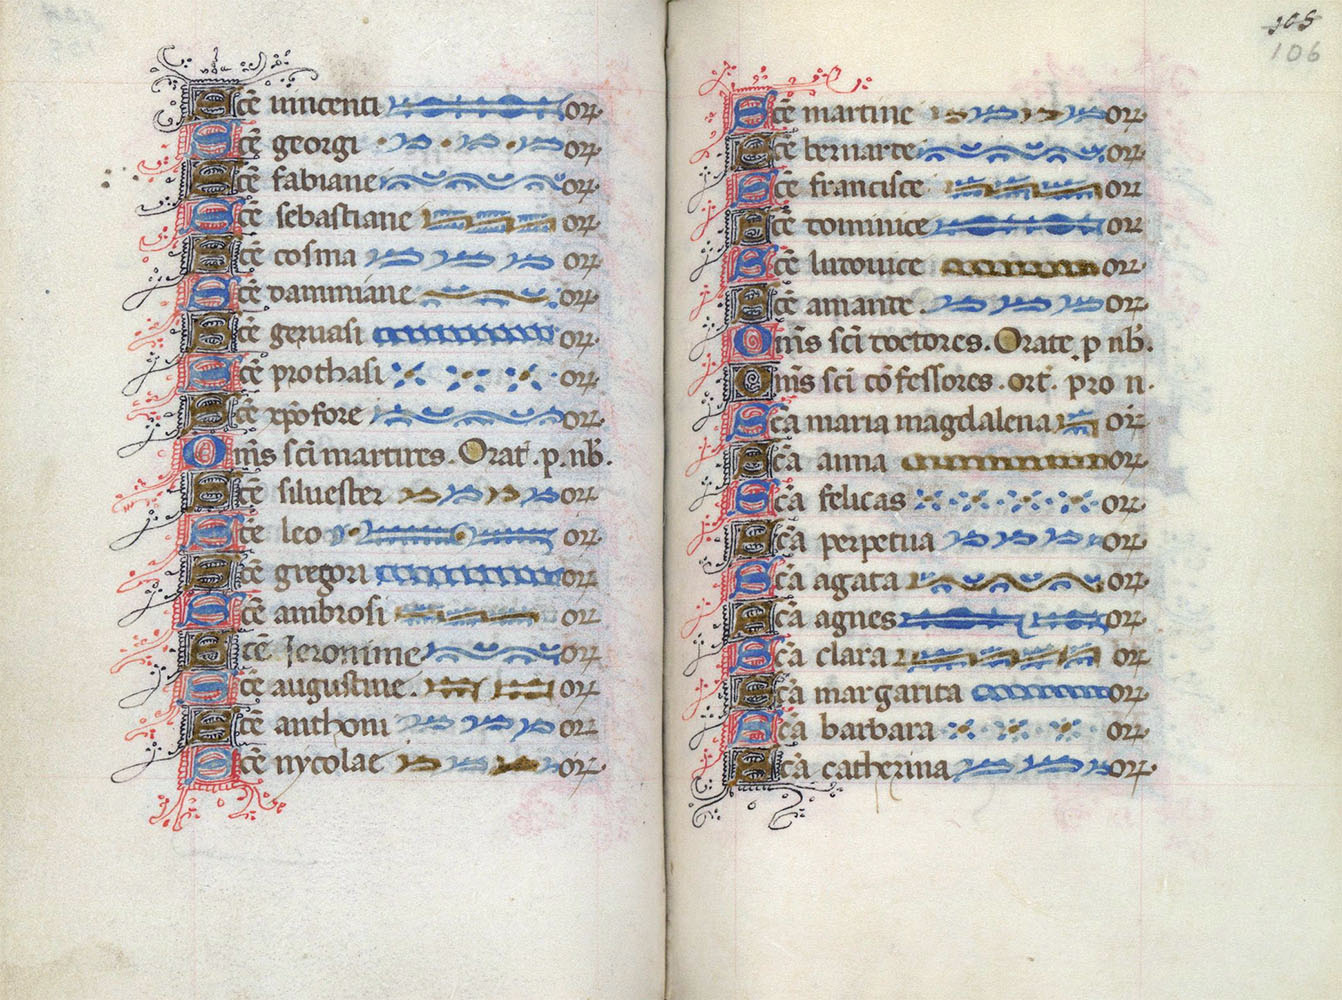 Sc̄e vincenti orꝝ
Sc̄e georgi orꝝ.
Sc̄e fabiane orꝝ.
Sc̄e sebastiane orꝝ.
Sc̄e cosma orꝝ
Sc̄e dammiane orꝝ.
Sc̄e geruasi orꝝ.
Sc̄e prothasi orꝝ.
Sc̄e xp̄ofore orꝝ.
Om̄s sc̄i martires. Orat̄ .p. nb̄.
Sc̄e siluester orꝝ
Sc̄e leo orꝝ
Sc̄e gregori orꝝ
Sc̄e ambrosi orꝝ
Sc̄e Jeronime orꝝ
Sc̄e augustine. orꝝ
Sc̄e anthoni orꝝ
Sc̄e nycolae orꝝ.
105
106
Sc̄e martine orꝝ.
Sc̄e bernarde orꝝ.
Sc̄e francisce orꝝ
Sc̄e dominice orꝝ
Sc̄e ludouice orꝝ
Sc̄e amande. orꝝ
Om̄s sc̄i doctores. Orate p nb̄.
Om̄s sci cōfessores. ort̄. pro n.
Sc̄a maria magdalena orꝝ
Sc̄a anna orꝝ.
Sc̄a felicas orꝝ.
Sc̄a perpetua orꝝ.
Sc̄a agata orꝝ
Sc̄a agnes orꝝ.
Sc̄a clara orꝝ.
Sc̄a margarita orꝝ
Sc̄a barbara orꝝ.
Sc̄a catherina orꝝ.